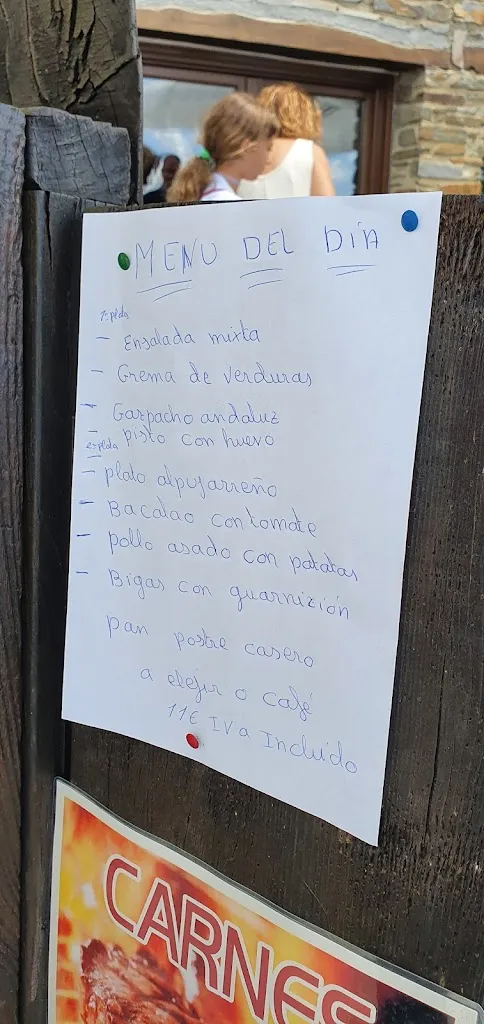 MENU DEL DIA
1º plda
- Ensalada mixta
- Crema de verduras
- Gazpacho andaluz
- pisto con huevo
2º plda
- plato alpujarreño
- Bacalao con tomate
- pollo asado con patatas
- Bigas con guarnizión
pan postre casero
a elejir o café
11€ IVa Incluido
CARNES